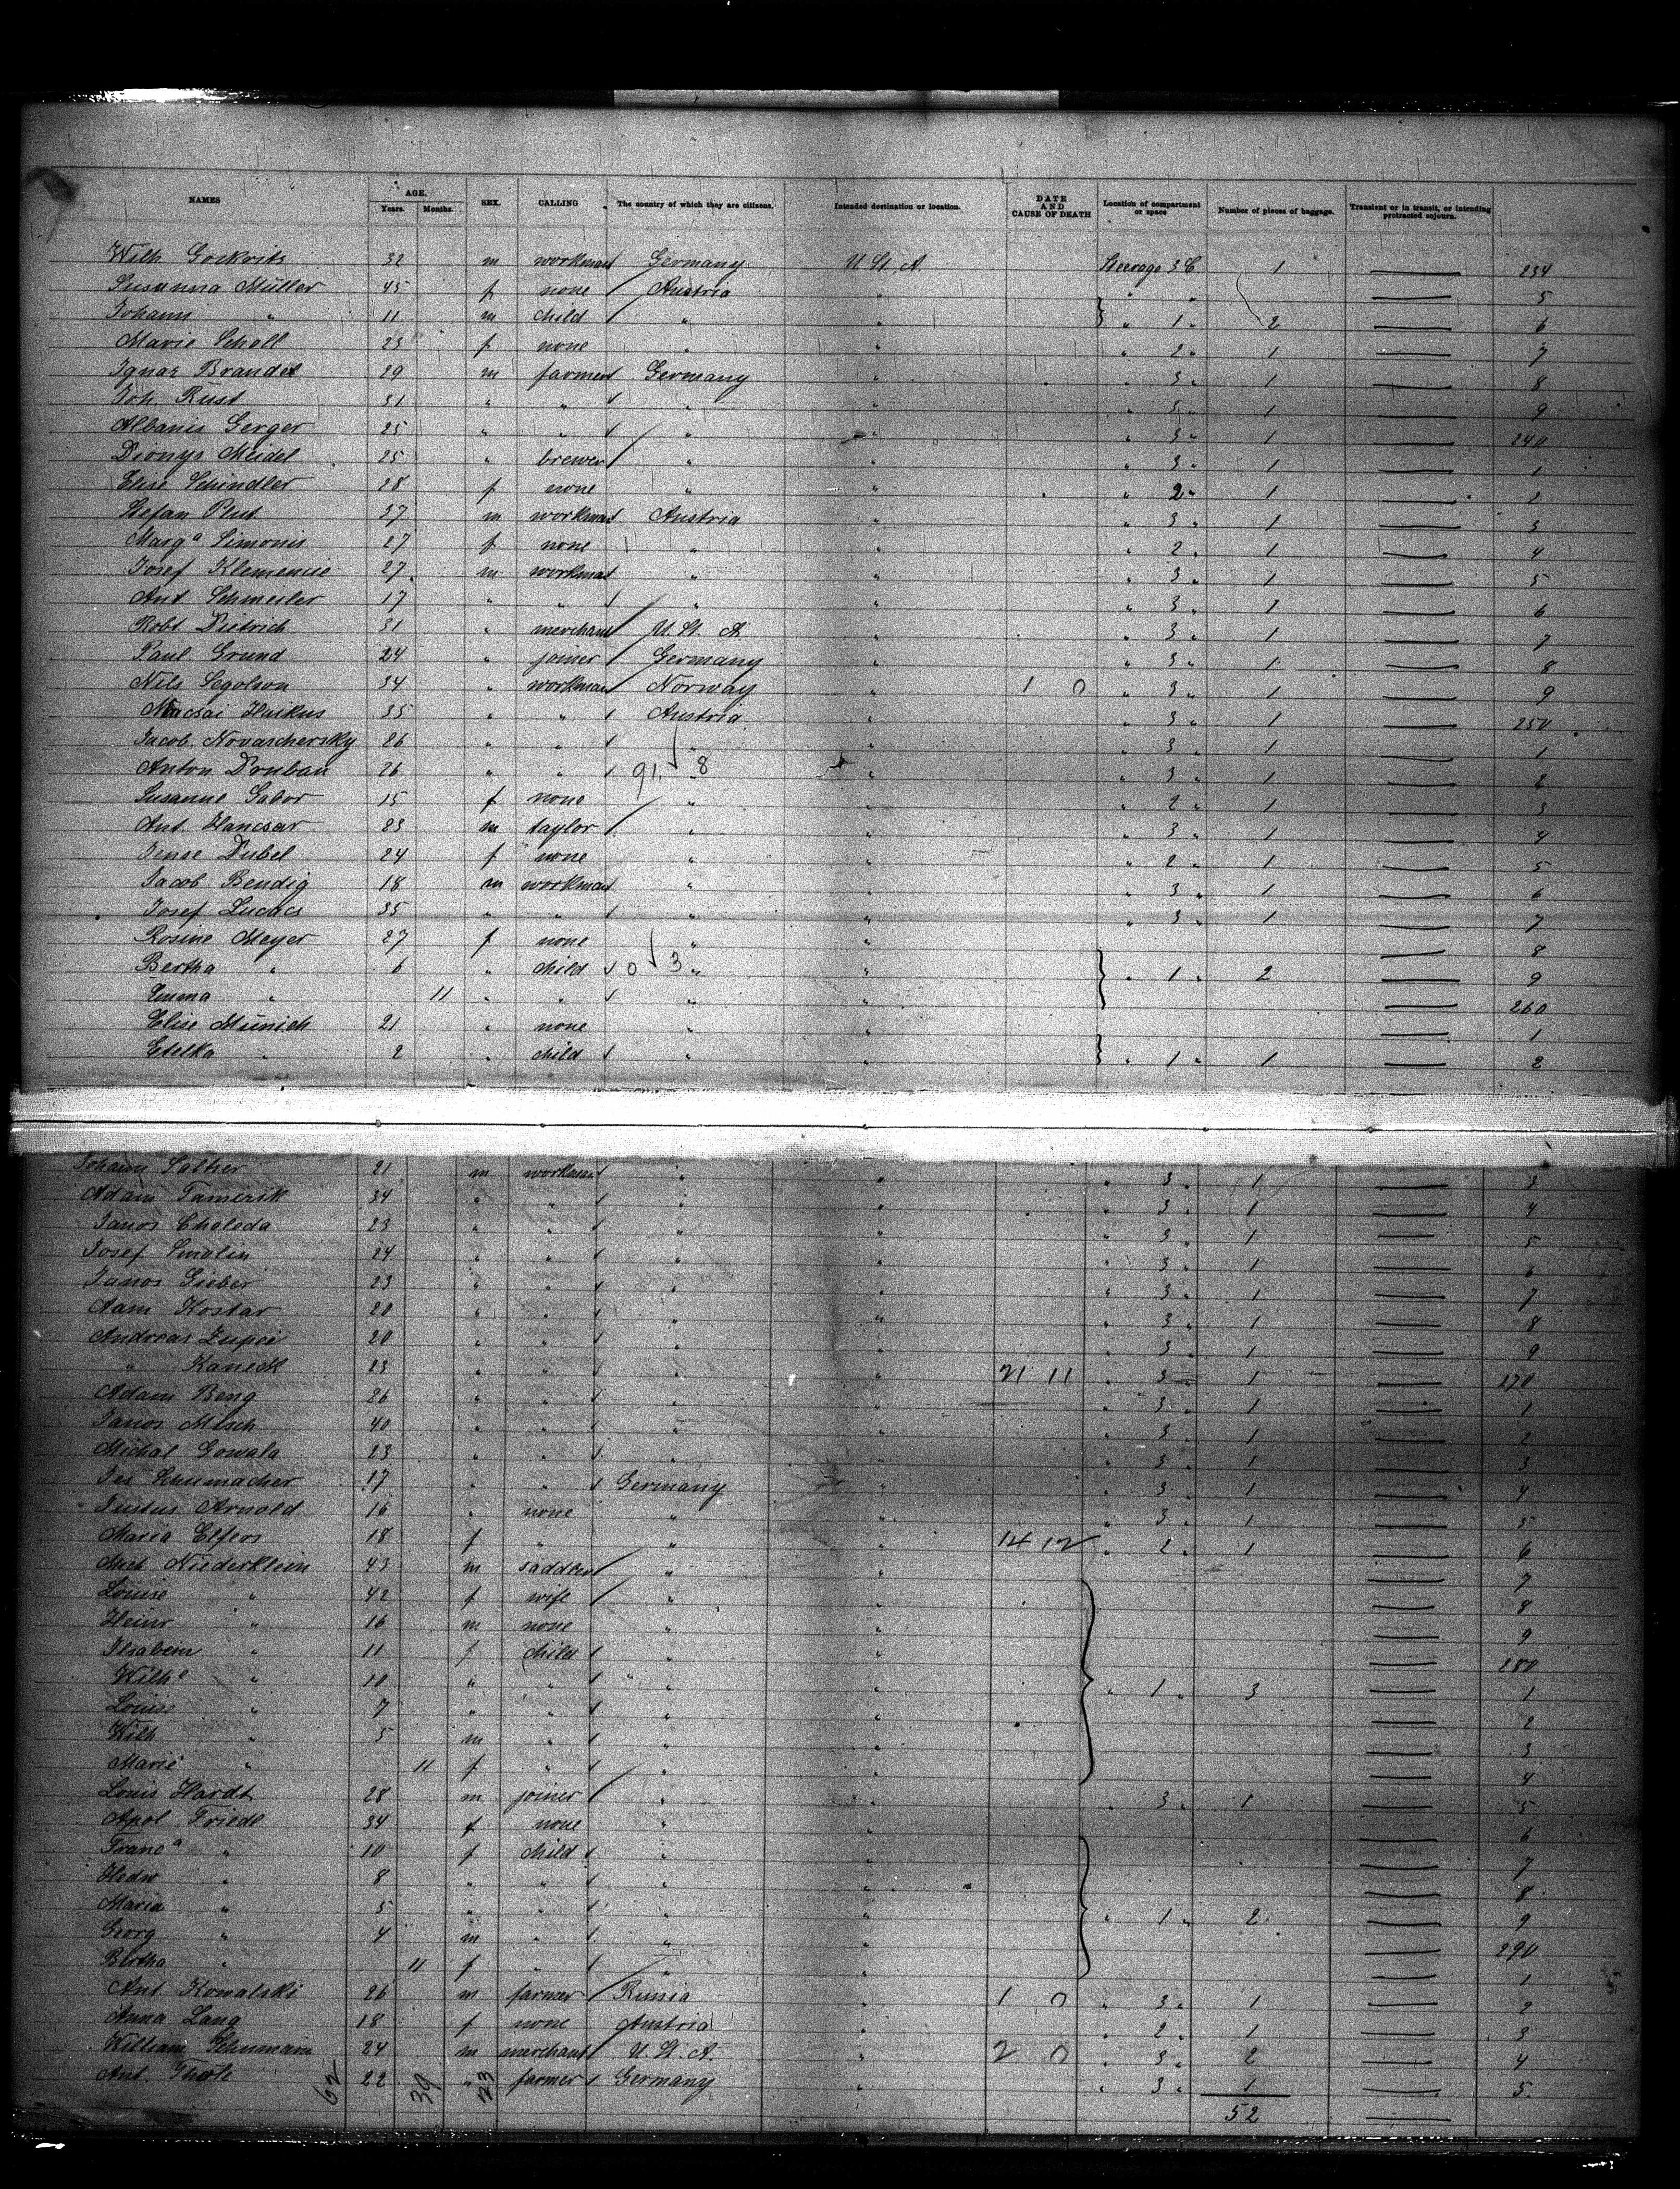 NAMES AGE. Years. Months. SEX. CALLING The country of which they are citizens. Intended destination or location. DATE AND CAUSE OF DEATH Location of compartment or space Number of pieces of baggage. Transient or in transit, or intending protracted sojourn.
Wilh Gockvits 32 m workman Germany U St. A Steerage 3 C 1 — 234
Susanna Müller 45 f none Austria " " " — 5
Johann " 11 m child " " " 1 " 2 — 6
Marie Scholl 23 f none " " " 2 " 1 — 7
Ignaz Brandes 29 m farmer Germany " " 3 " 1 — 8
Joh. Rust 31 " " " " " 3 " 1 — 9
Albanis Gerger 25 " " " " " 3 " 1 — 240
Dionys Meidel 25 " brewer " " " 3 " 1 — 1
Elise Schindler 28 f none " " " 2 " 1 — 2
Stefan Plut 37 m workman Austria " " 3 " 1 — 3
Marg a Simonis 27 f none " " " 2 " 1 — 4
Josef Klemencic 27 m workman " " " 3 " 1 — 5
Ant. Schmeiler 17 " " " " " 3 " 1 — 6
Robt Dietrich 31 " merchant U. St. A " " 3 " 1 — 7
Paul Grund 24 " joiner Germany " " 3 " 1 — 8
Nils Segolson 34 " workman Norway " 1 0 " 3 " 1 — 9
Macsai Haikus 35 " " Austria " " 3 " 1 — 250
Jacob Novaschersky 26 " " " " " 3 " 1 — 1
Anton Douban 26 " " 91 8 " " " 3 " 1 — 2
Susanne Gabor 15 f none " " " 2 " 1 — 3
Ant. Hancsar 23 m taylor " " " 3 " 1 — 4
Dubel 24 f none " " " 2 " 1 — 5
Jacob Bendig 18 m workman " " " 3 " 1 — 6
Josef Lucacs 35 " " " " " 3 " 1 — 7
Rosine Meyer 27 f none " " — 8
Bertha " 6 " child 0 3 " " " 1 " 2 — 9
Emma " 11 " " " " — 260
Elise Münich 21 " none " " — 1
Etelka " 2 " child " " " 1 " 1 — 2
Johann Salher 21 m workman " " " 3 " 1 — 3
Adam Tamerik 34 " " " " " 3 " 1 — 4
Janos Choleda 23 " " " " " 3 " 1 — 5
Josef Smolin 24 " " " " " 3 " 1 — 6
Janos Gieber 23 " " " " " 3 " 1 — 7
Aam Kostar 20 " " " " " 3 " 1 — 8
Andreas Zupci 20 " " " " " 3 " 1 — 9
" Kaneck 23 " " " " 21 11 " 3 " 1 — 270
Adam Beng 26 " " " " " 3 " 1 — 1
Janos Misch 40 " " " " " 3 " 1 — 2
Michal Gowala 23 " " " " " 3 " 1 — 3
Schumacher 17 " " Germany " " 3 " 1 — 4
Justus Arnold 16 " none " " " 3 " 1 — 5
Maria Elfers 18 f " " " 14 12 " 2 " 1 — 6
Mich Niederklein 43 m saddler " " — 7
Louise " 42 f wife " " — 8
Heinr " 16 m none " " — 9
Ilsabein " 11 f child " " — 280
Wilh e " 10 " " " " " 1 " 3 — 1
Louise " 7 " " " " — 2
Wilh " 5 m " " " — 3
Marie " 11 f " " " — 4
Louis Hardt 28 m joiner " " " 3 " 1 — 5
Apol Friede 34 f none " " — 6
Franc a " 10 f child " " — 7
Hedw " 8 " " " " — 8
Maria " 5 " " " " " 1 " 2 — 9
Georg " 4 m " " " — 290
Bertha " 11 f " " " — 1
Ant Kowalski 26 m farmer Russia " 1 0 " 3 " 1 — 2
Anna Lang 18 f none Austria " " 2 " 1 — 3
William Schumain 24 m merchant U. St. A. " 2 0 " 3 " 2 — 4
Ant. 22 " farmer Germany " " 3 " 1 — 5
62 39 23 52 —